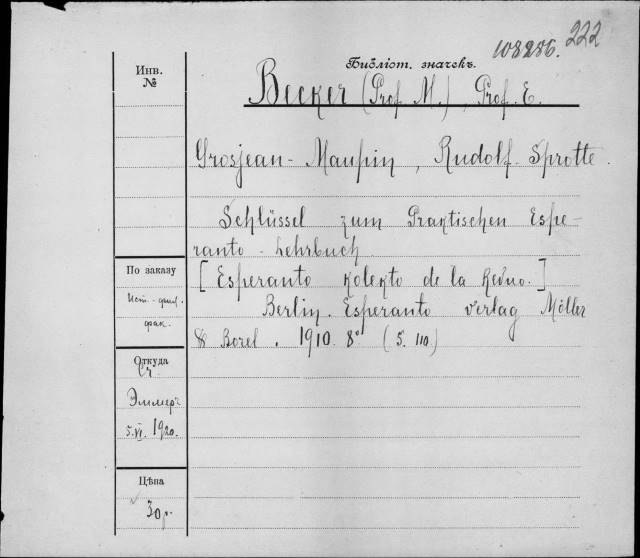 108286. 222
Библіот. значекъ.
Инв.
№
Becker (Prof M.), Prof. E.
Grosjean-Maupin, Rudolf Sprotte.
Schlüssel zum Praktischen Espe-
ranto-Lehrbuch
По заказу
[Esperanto Kolekto de la Revuo.]
Ист.-фил.
фак.
Berlin. Esperanto verlag Möller
& Borel. 1910. 8° (S. 110.)
Откуда
Эммеръ
5.VI. 1920.
Цѣна
30 р.